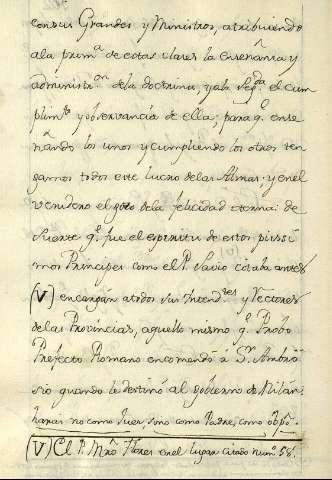 con sus Grandes y Ministros, atribuiendo
a la prim.ª de estas clases la enseñanza y
administr.on de la doctrina, y a la seg.da el cum
plim.to y observancia de ella; para q.e ense
ñando los unos y cumpliendo los otros ten
gamos todos este lucro de las Almas; y en el
venidero el gozo de la felicidad eterna: de
suerte q.e fue el espiritu de estos piissi
mos Principes como el P. Savio citaba antes
(V) encargàn a todos sus Intend.tes y Rectores
de las Provincias, aquello mismo q.e Probo
Prefecto Romano encomendò à S.n Ambro
sio quando le destinò al gobierno de Milàn:
haras no como Juez, sino como Padre, como obpõ.
(V) El P. Mrõ Florez en el lugar citado num.º 58.